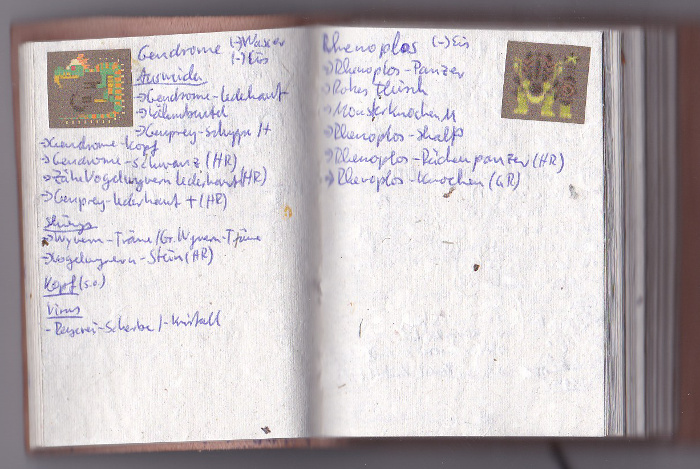 Gendrome (-) Wasser
(-) Eis
Ausweiden
→ Gendrome-Lederhaut
→ Lähmbeutel
→ Genprey-Schuppe/+
→ Gendrome-Kopf
→ Gendrome-Schwanz (HR)
→ Zähe Vogelwyvern Lederhaut (HR)
→ Genprey-Lederhaut + (HR)
→ Wyvern-Träne/Gr. Wyvern-Träne
→ Vogelwyvern-Stein (HR)
Kopf (s.o.)
Virus
- Raserei-Scherbe/-Kristall
Rhenoplos (-) Eis
→ Rhenoplos-Panzer
→ Rohes Fleisch
→ Monsterknochen M
→ Rhenoplos-Skalp
→ Rhenoplos-Rückenpanzer (HR)
→ Rhenoplos-Knochen (GR)